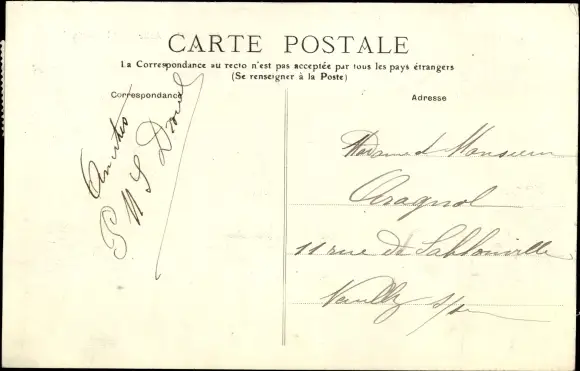 CARTE POSTALE
La Correspondance au recto n'est pas acceptée par tous les pays étrangers
(Se renseigner à la Poste)
Correspondance
Adresse
Amitiés
Madame & Monsieur
Aragnol
11 rue de Sablonville
Neuilly s/